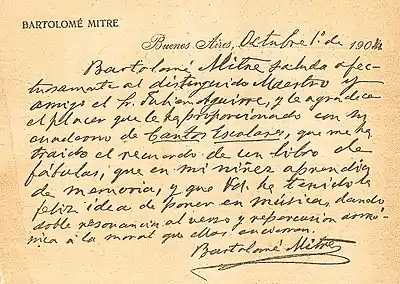 BARTOLOMÉ MITRE
Buenos Aires, Octubre 1º de 1904
Bartolomé Mitre saluda afec-
tuosamente al distinguido Maestro y
amigo el Sr. Julian Aguirre, y le agradece
el placer que le ha proporcionado con su
cuaderno de Cantos Escolares, que me ha
traido el recuerdo de un libro de
fábulas, que en mi niñez aprendia
de memoria, y que Vd. ha tenido la
feliz idea de poner en música, dando
doble resonancia al verso y repercusion armó-
nica á la moral que ellas encierran.
Bartolomé Mitre